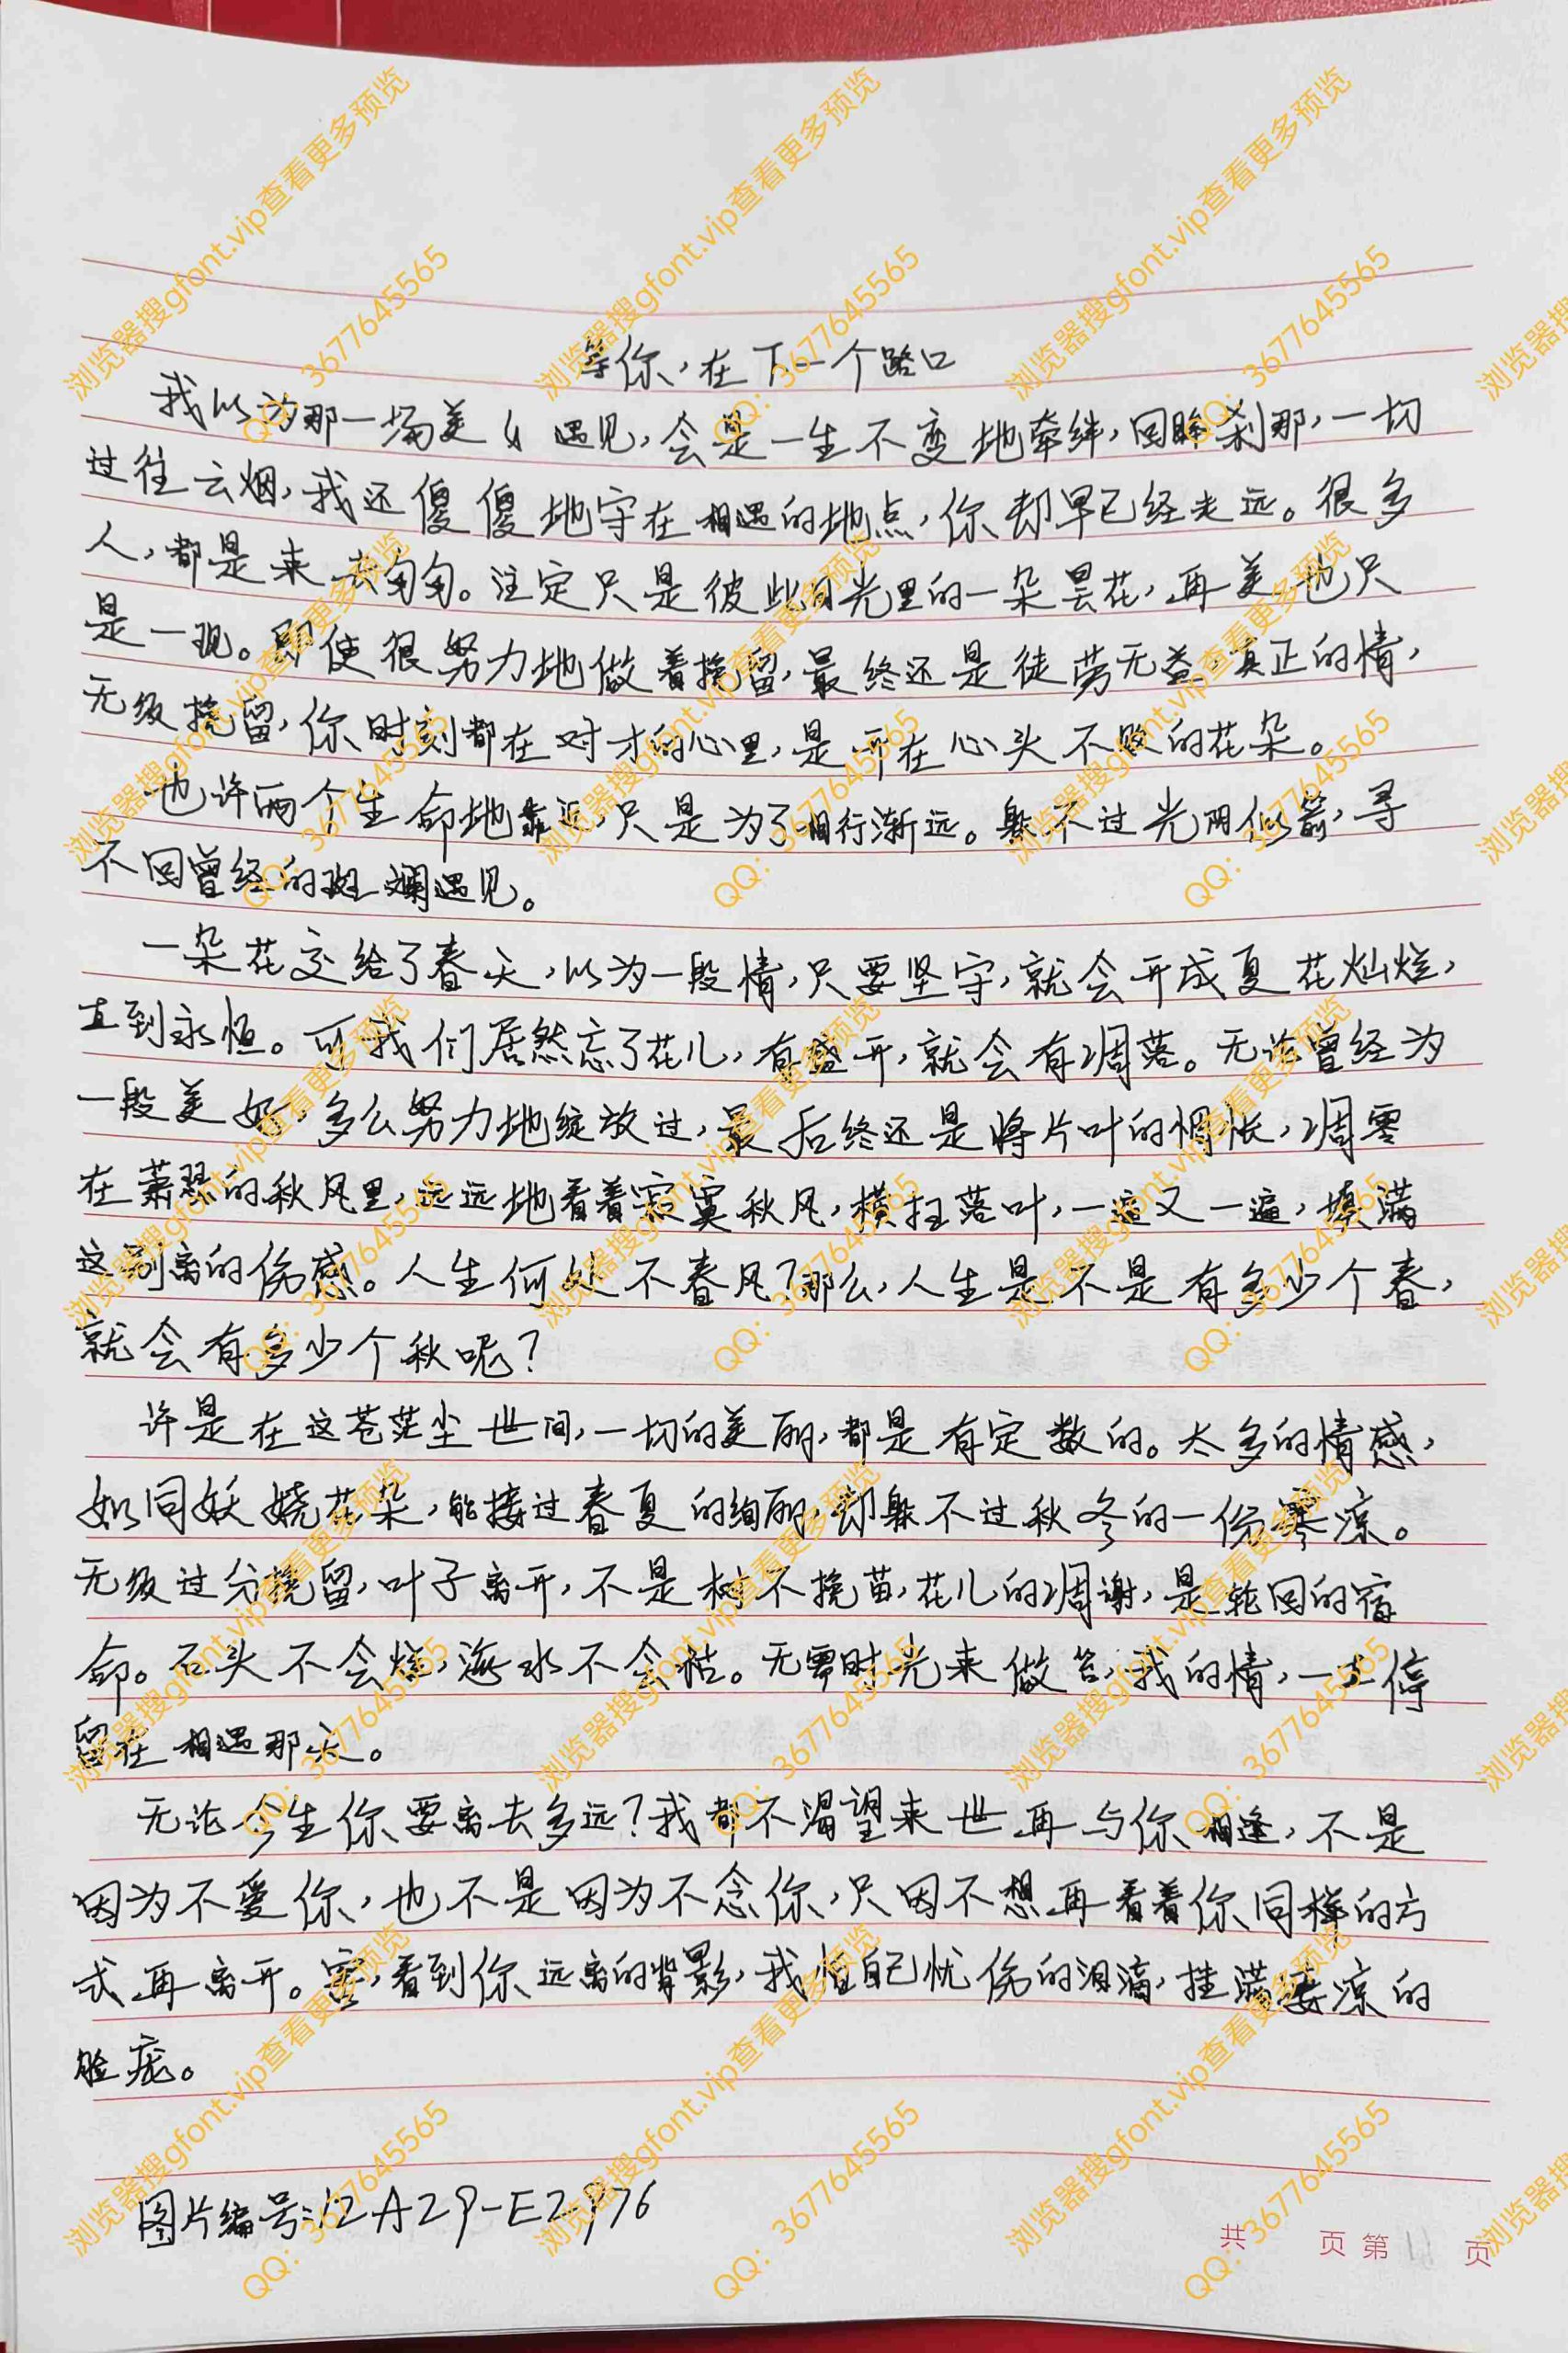 等你，在下一个路口
我以为那一场美的遇见，会是一生不变地牵绊，回眸刹那，一切
过往云烟，我还傻傻地守在相遇的地点，你却早已经走远。很多
人，都是来去匆匆。注定只是彼此目光里的一朵昙花，再美也只
是一现。即使很努力地做着挽留，最终还是徒劳无益，真正的情，
无须挽留，你时刻都在对方的心里，是开在心头不败的花朵。
也许两个生命地靠近，只是为了相行渐远。躲不过光阴似箭，寻
不回曾经的斑斓遇见。
一朵花交给了春天，以为一段情，只要坚守，就会开成夏花灿烂，
直到永恒。可我们居然忘了花儿，有盛开，就会有凋落。无论曾经为
一段美好，多么努力地绽放过，最后终还是将片叶的惆怅，凋零
在萧瑟的秋风里，远远地看着寂寞秋风，横扫落叶，一遍又一遍，填满
这别离的伤感。人生何处不春风？那么，人生是不是有多少个春，
就会有多少个秋呢？
许是在这苍茫尘世间，一切的美丽，都是有定数的。太多的情感，
如同妖娆花朵，能接过春夏的绚丽，却躲不过秋冬的一份寒凉。
无须过分挽留，叶子离开，不是树不挽苗，花儿的凋谢，是轮回的宿
命。石头不会烂，海水不会枯。无需时光来做答，我的情，一直停
留在相遇那天。
无论今生你要离去多远？我都不渴望来世再与你相逢，不是
因为不爱你，也不是因为不念你，只因不想再看着你同样的方
式再离开。害，看到你远离的背影，我怕自己忧伤的泪滴，挂满凄凉的
脸庞。
图片编号:12A29-E2976
共 页第 页
浏览器搜gfont.vip查看更多预览
QQ：3677645565